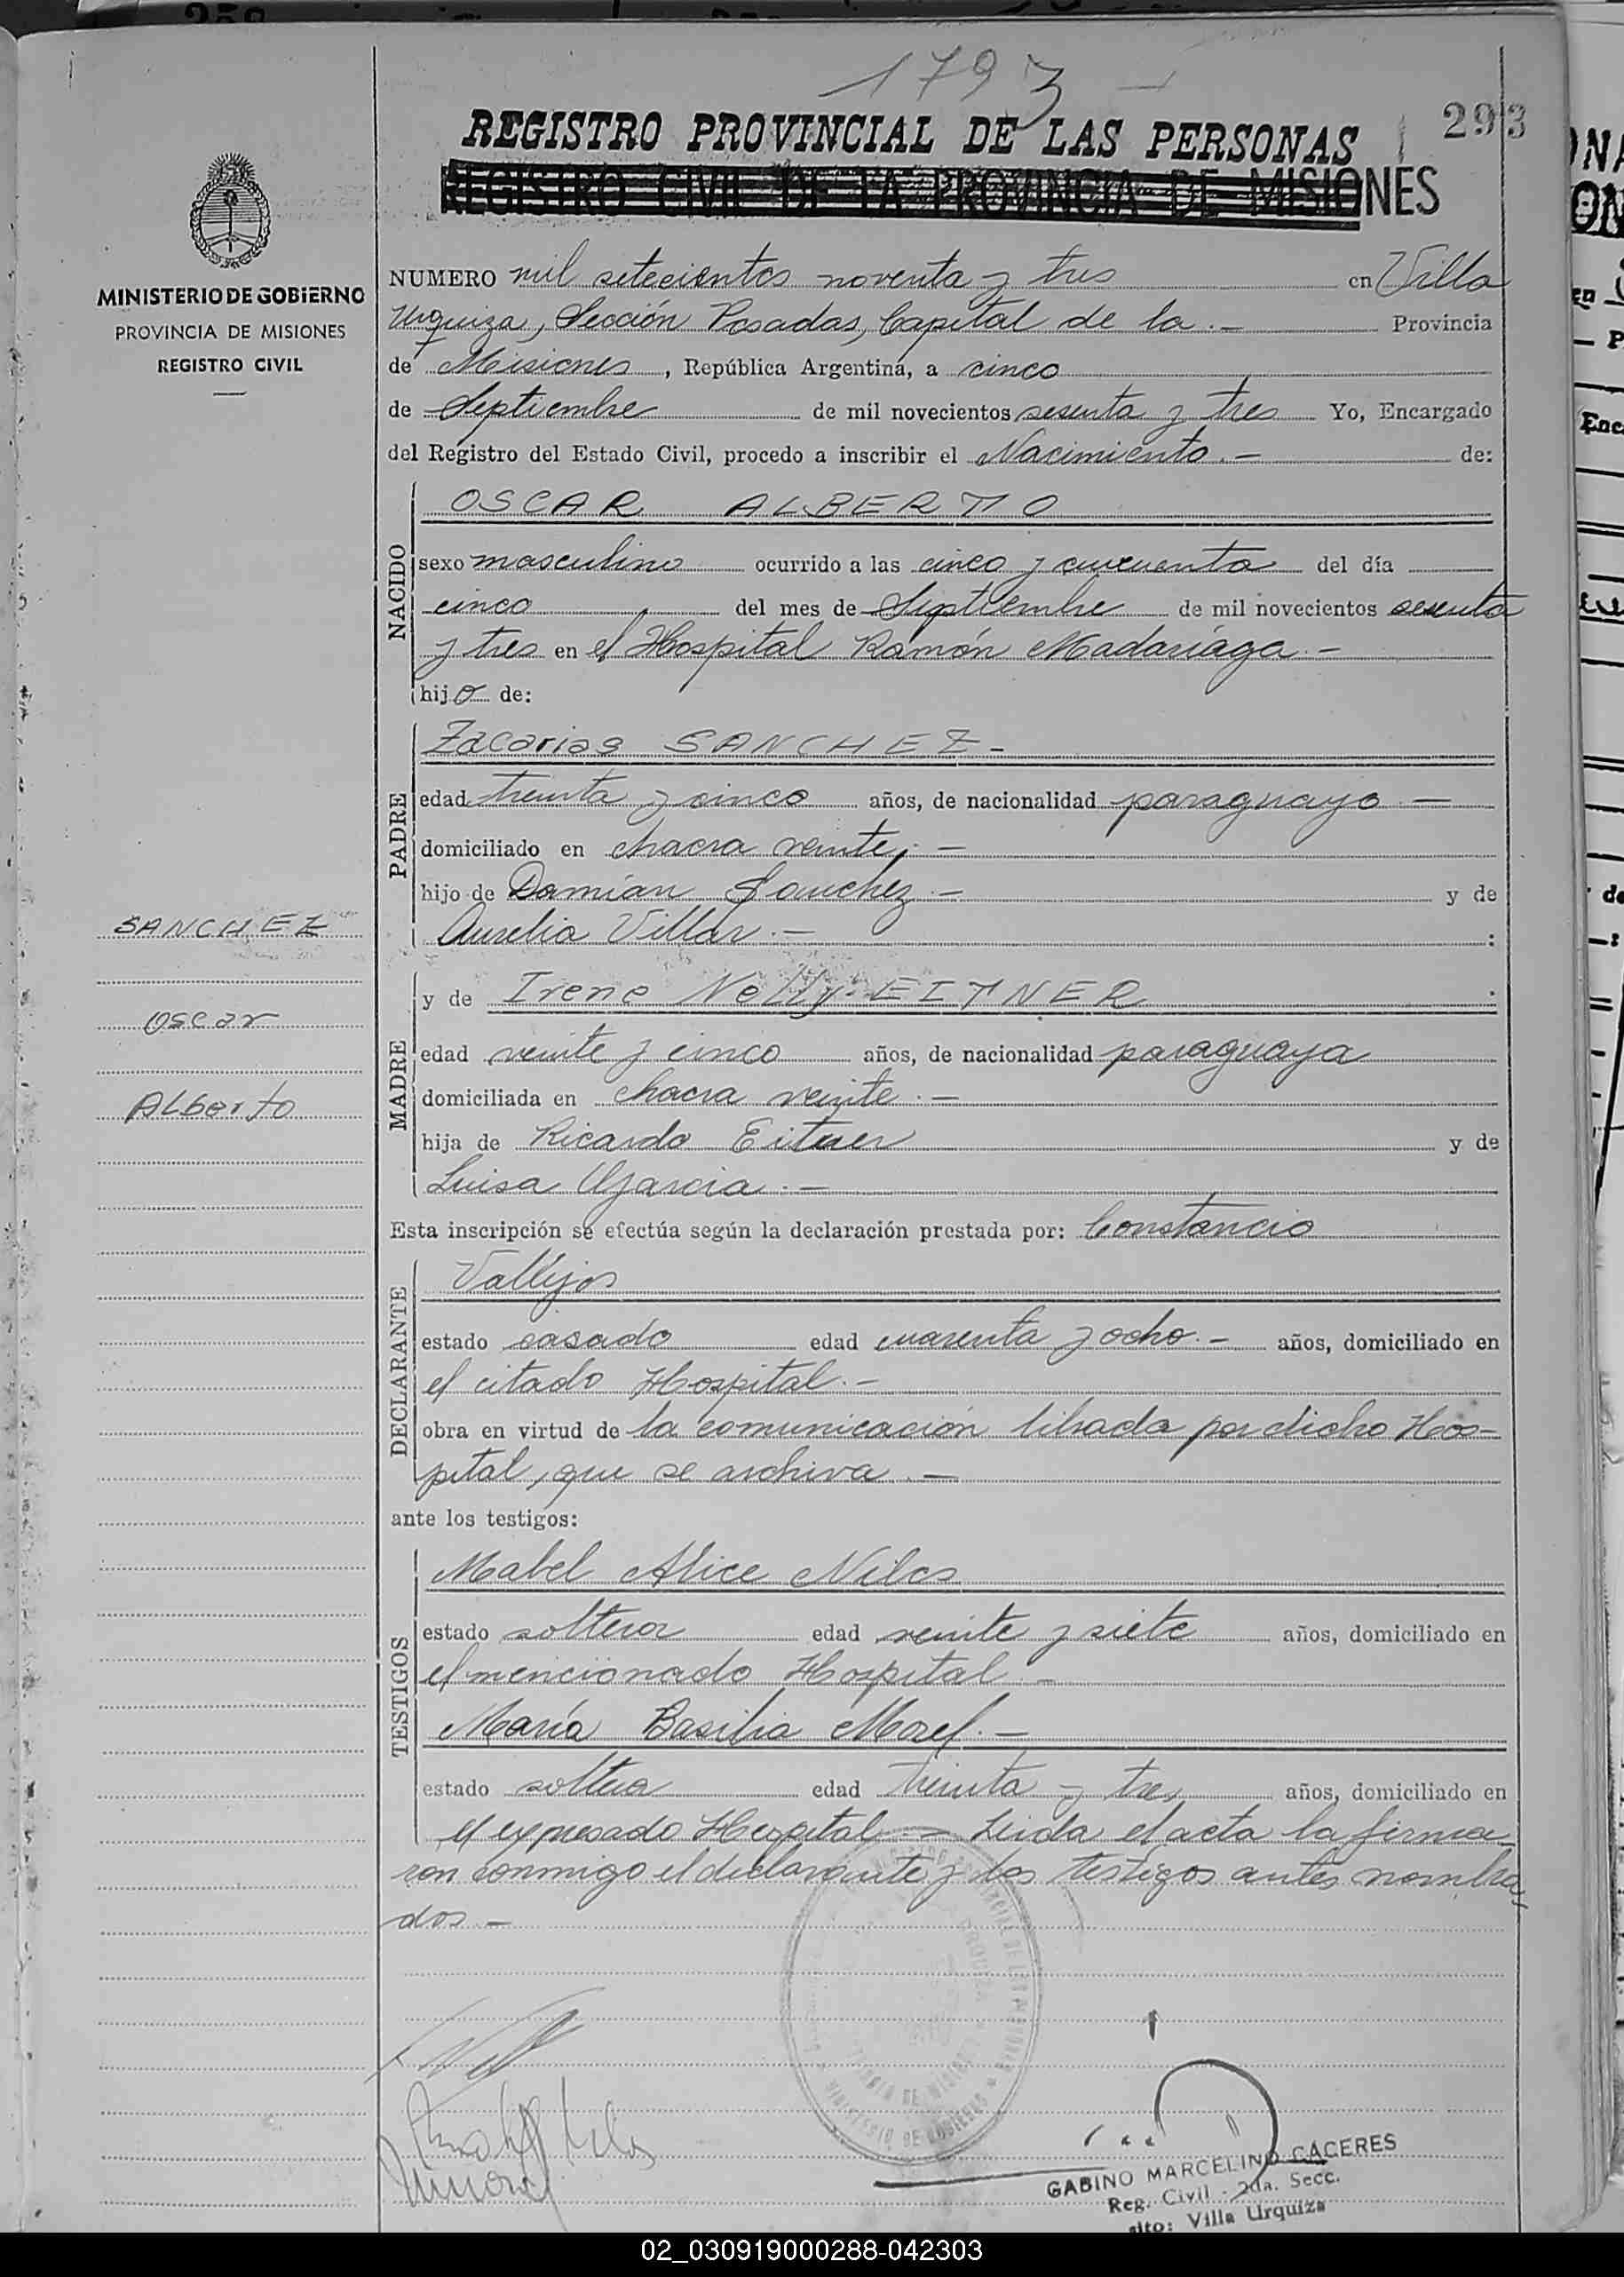 1793 -
293
REGISTRO PROVINCIAL DE LAS PERSONAS
REGISTRO CIVIL DE LA PROVINCIA DE MISIONES
MINISTERIO DE GOBIERNO
PROVINCIA DE MISIONES
REGISTRO CIVIL
NUMERO mil setecientos noventa y tres en Villa
Urquiza, Sección Posadas, Capital de la.- Provincia
de Misiones, República Argentina, a cinco
de Septiembre de mil novecientos sesenta y tres Yo, Encargado
del Registro del Estado Civil, procedo a inscribir el Nacimiento.- de:
NACIDO
OSCAR ALBERTO
sexo masculino ocurrido a las cinco y cincuenta del día
cinco del mes de Septiembre de mil novecientos sesenta
y tres en el Hospital Ramón Madariaga.-
hijo de:
PADRE
Zacarias SANCHEZ-
edad treinta y cinco años, de nacionalidad paraguayo -
domiciliado en chacra veinte.-
hijo de Damián Sanchez.- y de
Aurelia Villar.- :
SANCHEZ
Oscar
Alberto
MADRE
y de Irene Nelly EITNER
edad veinte y cinco años, de nacionalidad paraguaya
domiciliada en chacra veinte.-
hija de Ricardo Eitner y de
Luisa .-
Esta inscripción se efectúa según la declaración prestada por: Constancio
DECLARANTE
Vallejos
estado casado edad cuarenta y ocho.- años, domiciliado en
el citado Hospital.-
obra en virtud de la comunicación librada por dicho Hos-
pital, que se archiva.-
ante los testigos:
TESTIGOS
Mabel Alice
estado soltera edad veinte y siete años, domiciliado en
el mencionado Hospital -
María Basilia Morel.-
estado soltera edad treinta y tres años, domiciliado en
el expresado Hospital.- Leida el acta la firma-
ron conmigo el declarante y los testigos antes nombra-
dos -
GABINO MARCELINO CACERES
Reg. Civil - 2da. Secc.
Villa Urquiza
02_030919000288-042303